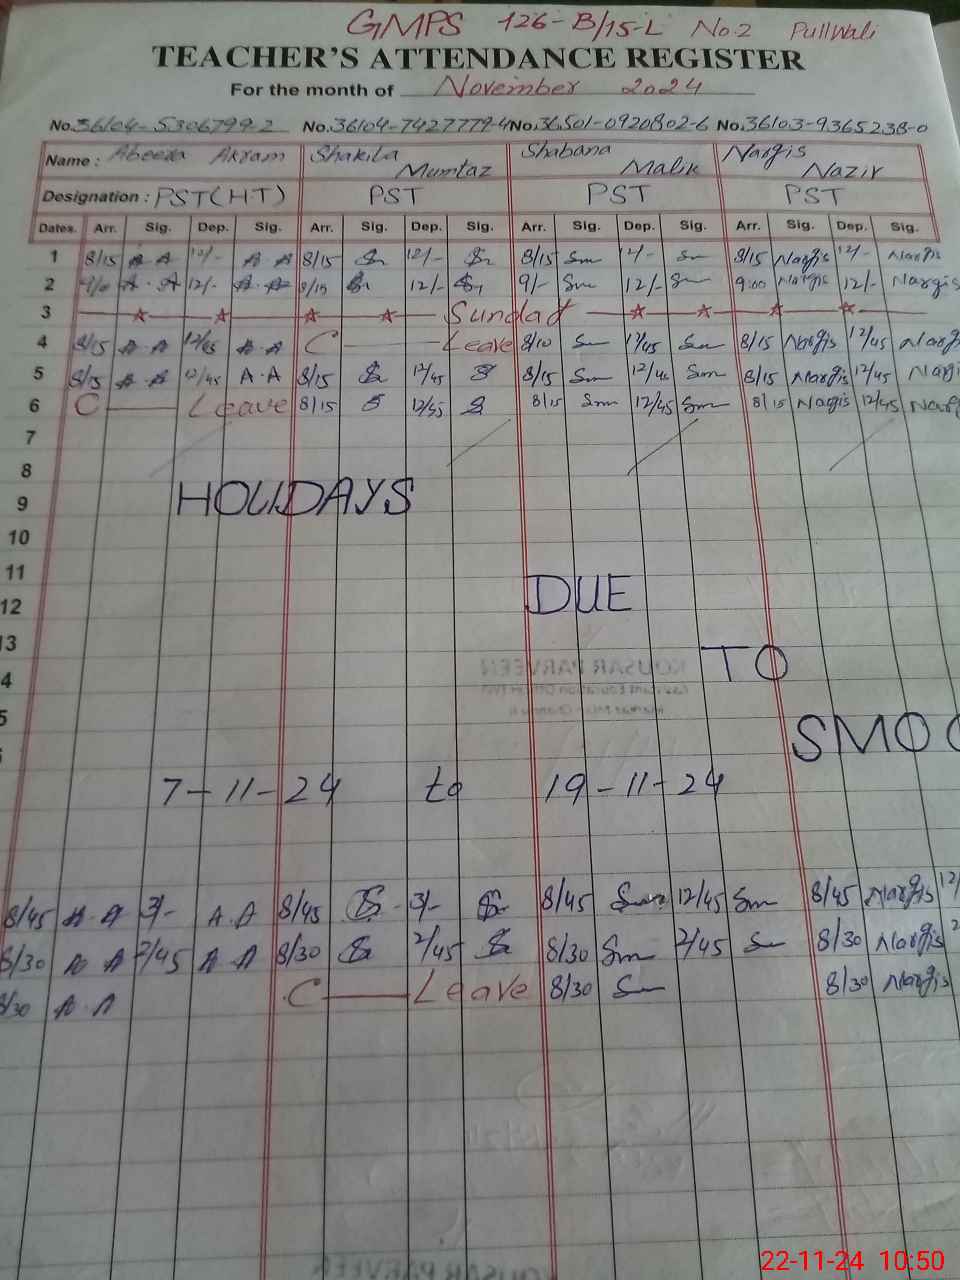 GMPS 126-B/15-L No.2 Pullwali
TEACHER'S ATTENDANCE REGISTER
For the month of November 2024
No. 36104-5306799-2 No. 36104-7427779-4 No. 36501-0920802-6 No. 36103-9365238-0
Name: Abeera Akram Shakila Mumtaz Shabana Malik Nargis Nazir
Designation: PST(H.T) PST PST PST
Dates. Arr. Sig. Dep. Sig. Arr. Sig. Dep. Sig. Arr. Sig. Dep. Sig. Arr. Sig. Dep. Sig.
1 8/15 A A 12/- A A 8/15 12/- 8/15 Sm 12/- Sm 8/15 Nargis 12/- Nargis
2 A.A 12/- A.A 8/15 12/- 9/- Sm 12/- Sm 9:00 Nargis 12/- Nargis
3 Sunday
4 8/15 A.A 12/45 A.A C Leave 8/10 Sm 12/45 Sm 8/15 Nargis 12/45 Nargis
5 8/15 A A 12/45 A.A 8/15 12/45 8/15 Sm 12/45 Sm 8/15 Nargis 12/45 Nargis
6 C Leave 8/15 12/35 8/15 Sm 12/45 Sm 8/15 Nargis 12/45 Nargis
7
8
9 HOLIDAYS
10
11
12 DUE
13
4 TO
5 SMO
7-11-24 to 19-11-24
8/45 A.A 3/- A.A 8/45 3/- 8/45 Sm 12/45 Sm 8/45 Nargis 12/
8/30 A A 2/45 A A 8/30 2/45 8/30 Sm 2/45 Sm 8/30 Nargis 2
8/30 A.A C Leave 8/30 Sm 8/30 Nargis
KOUSAR PARVEEN
KOUSAR PARVEEN
22-11-24 10:50